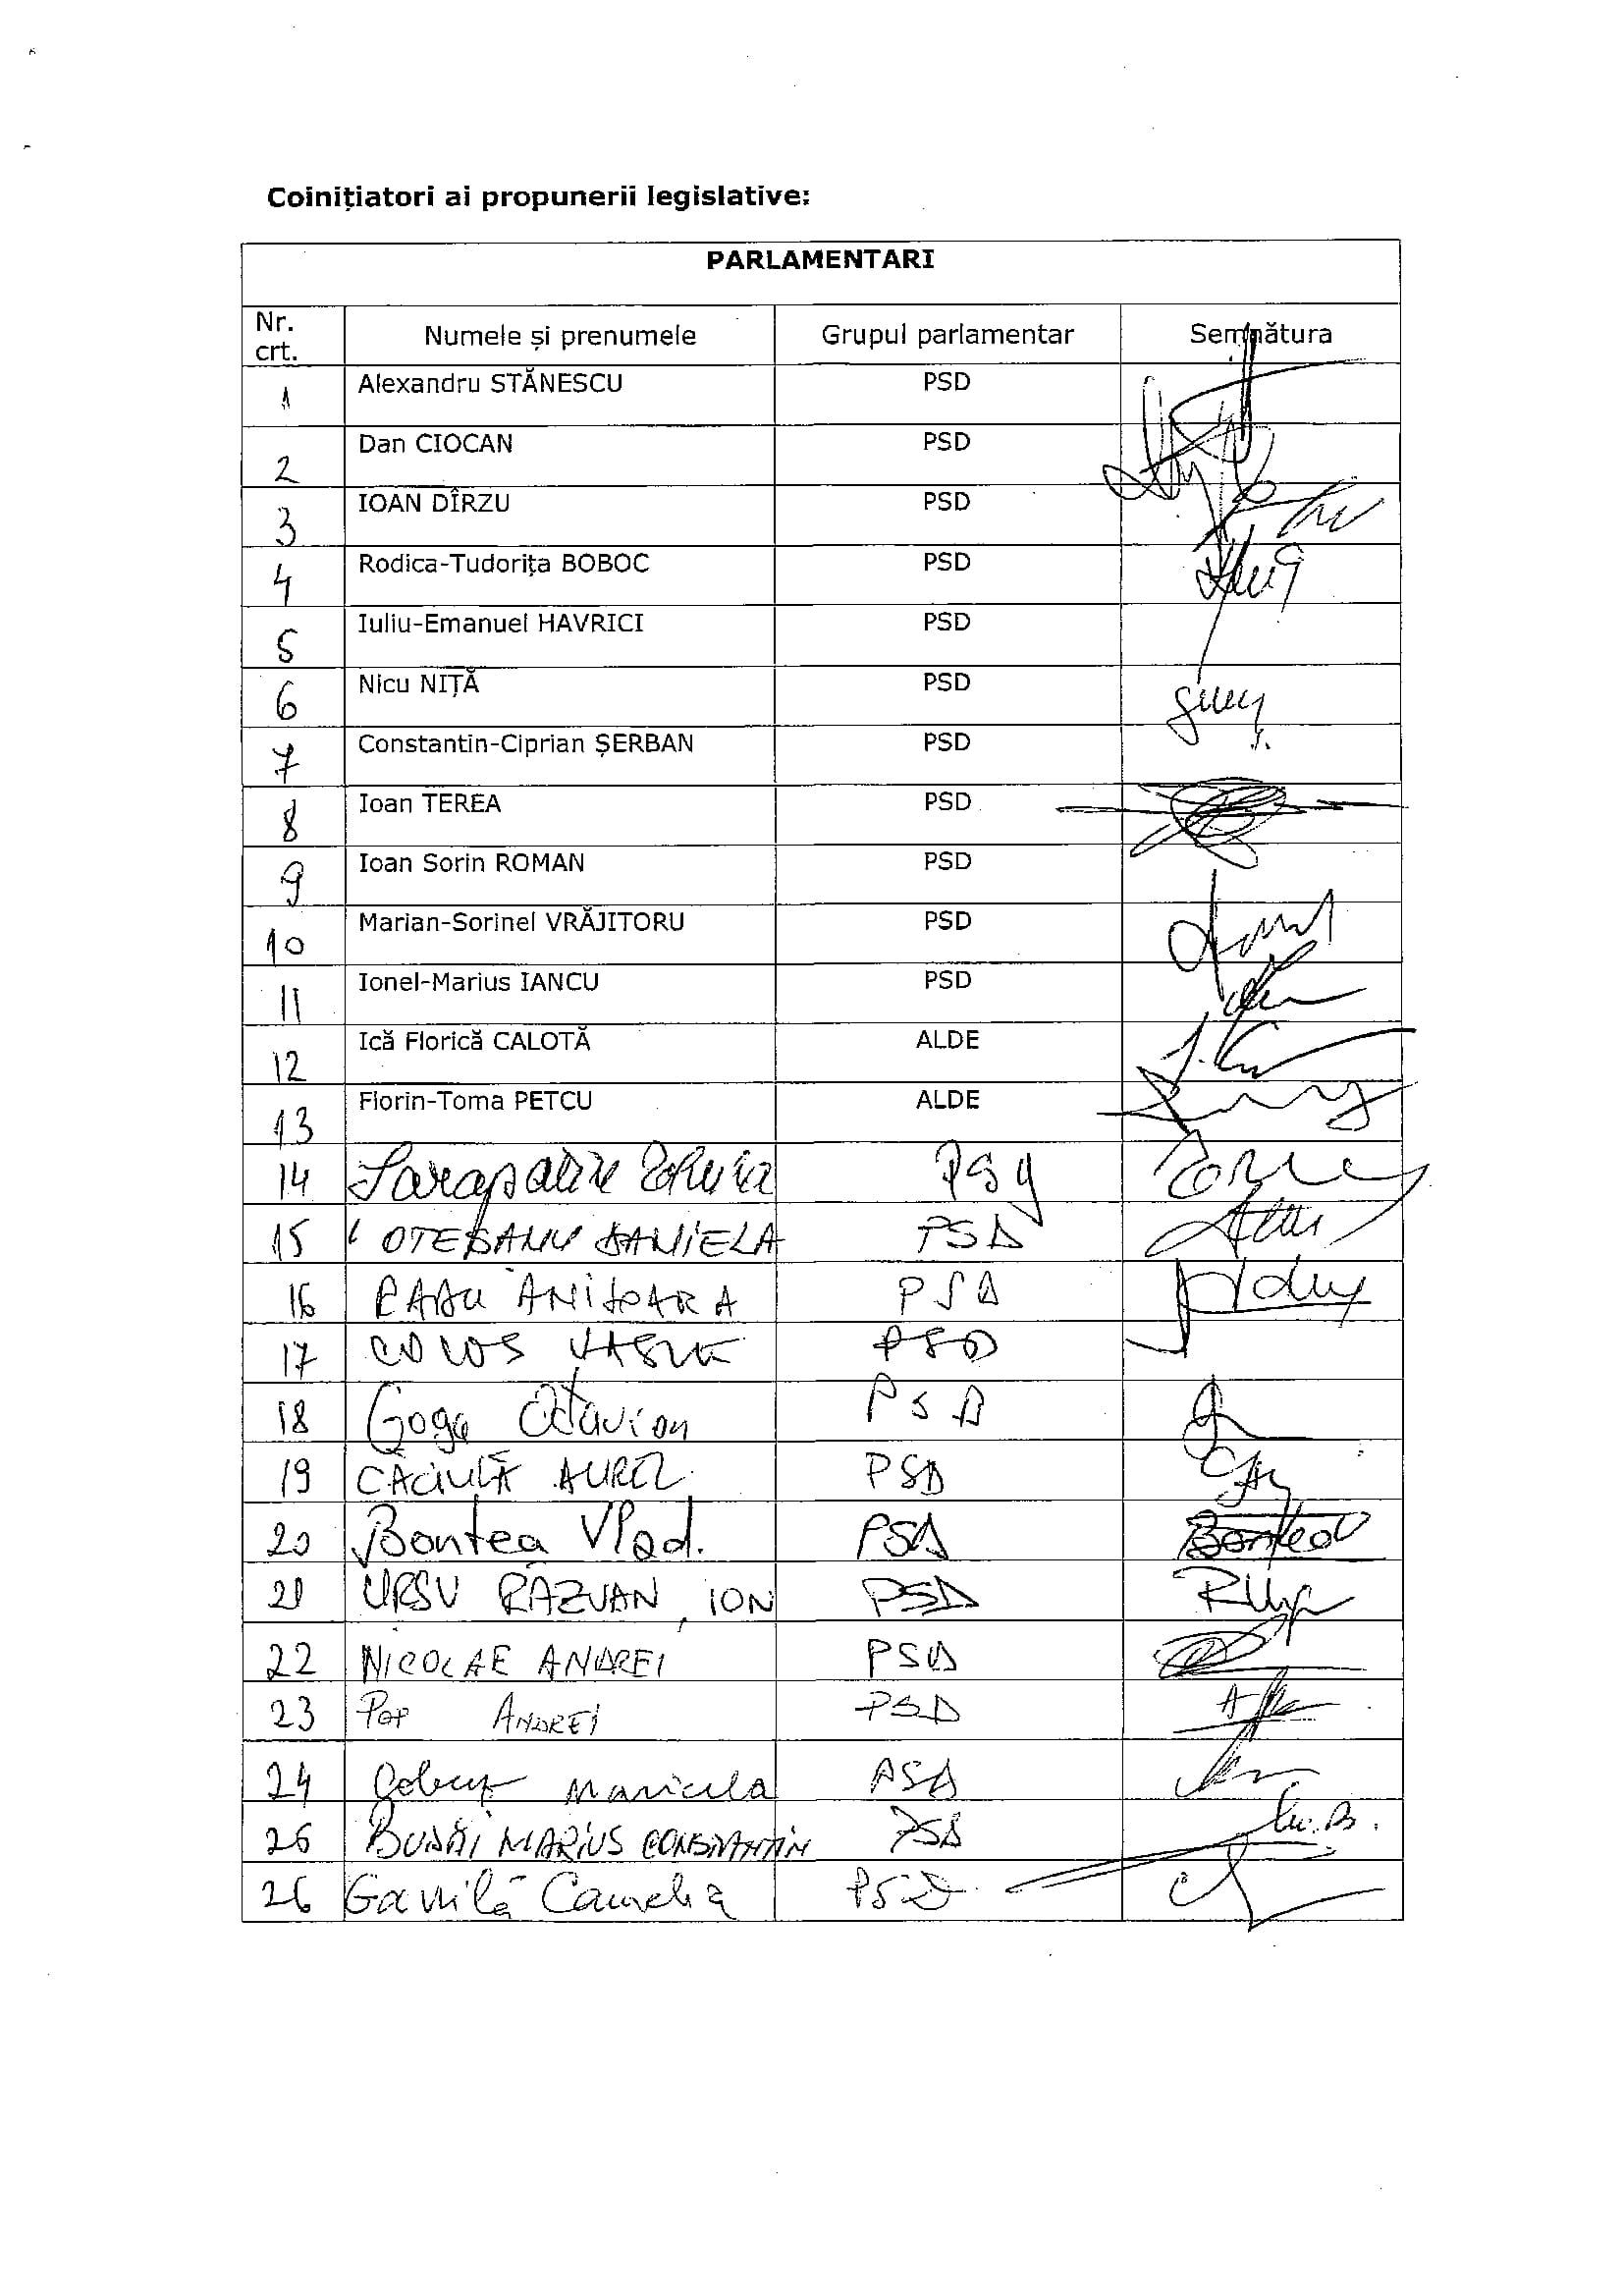 Coinițiatori ai propunerii legislative:
PARLAMENTARI
Nr. crt. Numele și prenumele Grupul parlamentar Semnătura
1 Alexandru STĂNESCU PSD
2 Dan CIOCAN PSD
3 IOAN DÎRZU PSD
4 Rodica-Tudorița BOBOC PSD
5 Iuliu-Emanuel HAVRICI PSD
6 Nicu NIȚĂ PSD
7 Constantin-Ciprian ȘERBAN PSD
8 Ioan TEREA PSD
9 Ioan Sorin ROMAN PSD
10 Marian-Sorinel VRĂJITORU PSD
11 Ionel-Marius IANCU PSD
12 Ică Florică CALOTĂ ALDE
13 Florin-Toma PETCU ALDE
14
15 OTEȘANU DANIELA PSD
16 RADU ANIȘOARA PSD
17 COCOS VASILE PSD
18 Goga Octavian PSD
19 CĂCIULĂ AUREL PSD
20 Bontea Vlad. PSD Bontea
21 URSU RĂZVAN, ION PSD
22 NICOLAE ANDREI PSD
23 POP ANDREI PSD
24 Maricela PSD
25 BUDĂI MARIUS CONSTANTIN PSD
26 Gavrilă Camelia PSD